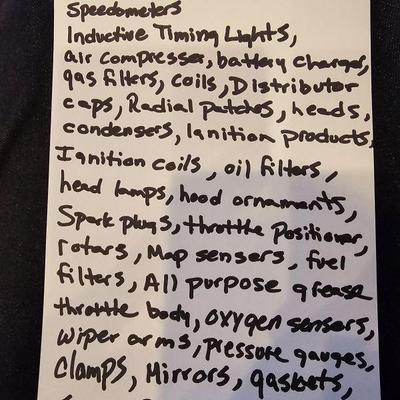 Speedometers
Inductive Timing Lights,
air compresser, battery charger,
gas filters, coils, Distributor
caps, Radial patches, heads,
condensers, Ignition products,
Ignition coils, oil filters,
head lamps, hood ornaments,
Spark plugs, throttle Positioner,
rotars, Map sensors, fuel
filters, All purpose grease
throttle body, oxygen sensors,
wiper arms, pressure gauges,
clamps, Mirrors, gaskets,